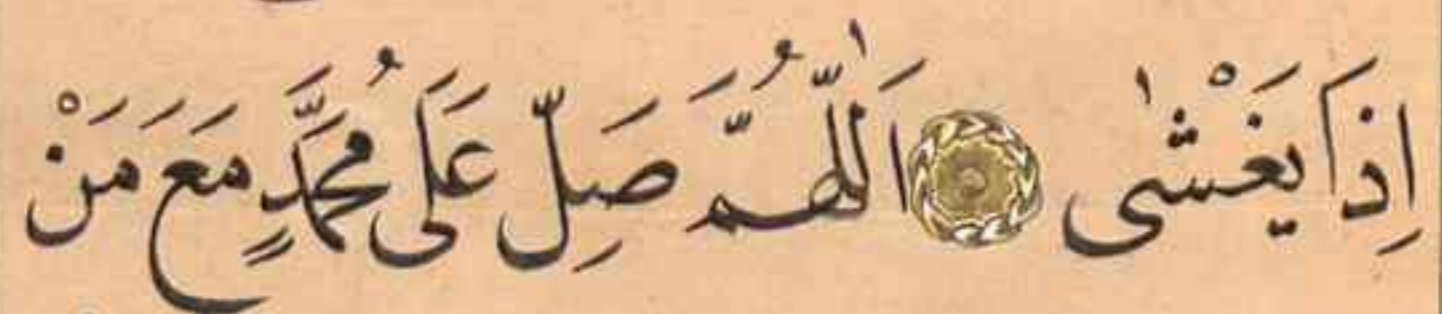 اِذَا يَغْشٰى اَللّٰهُمَّ صَلِّ عَلَى مُحَمَّدٍ مَعَ مَنْ